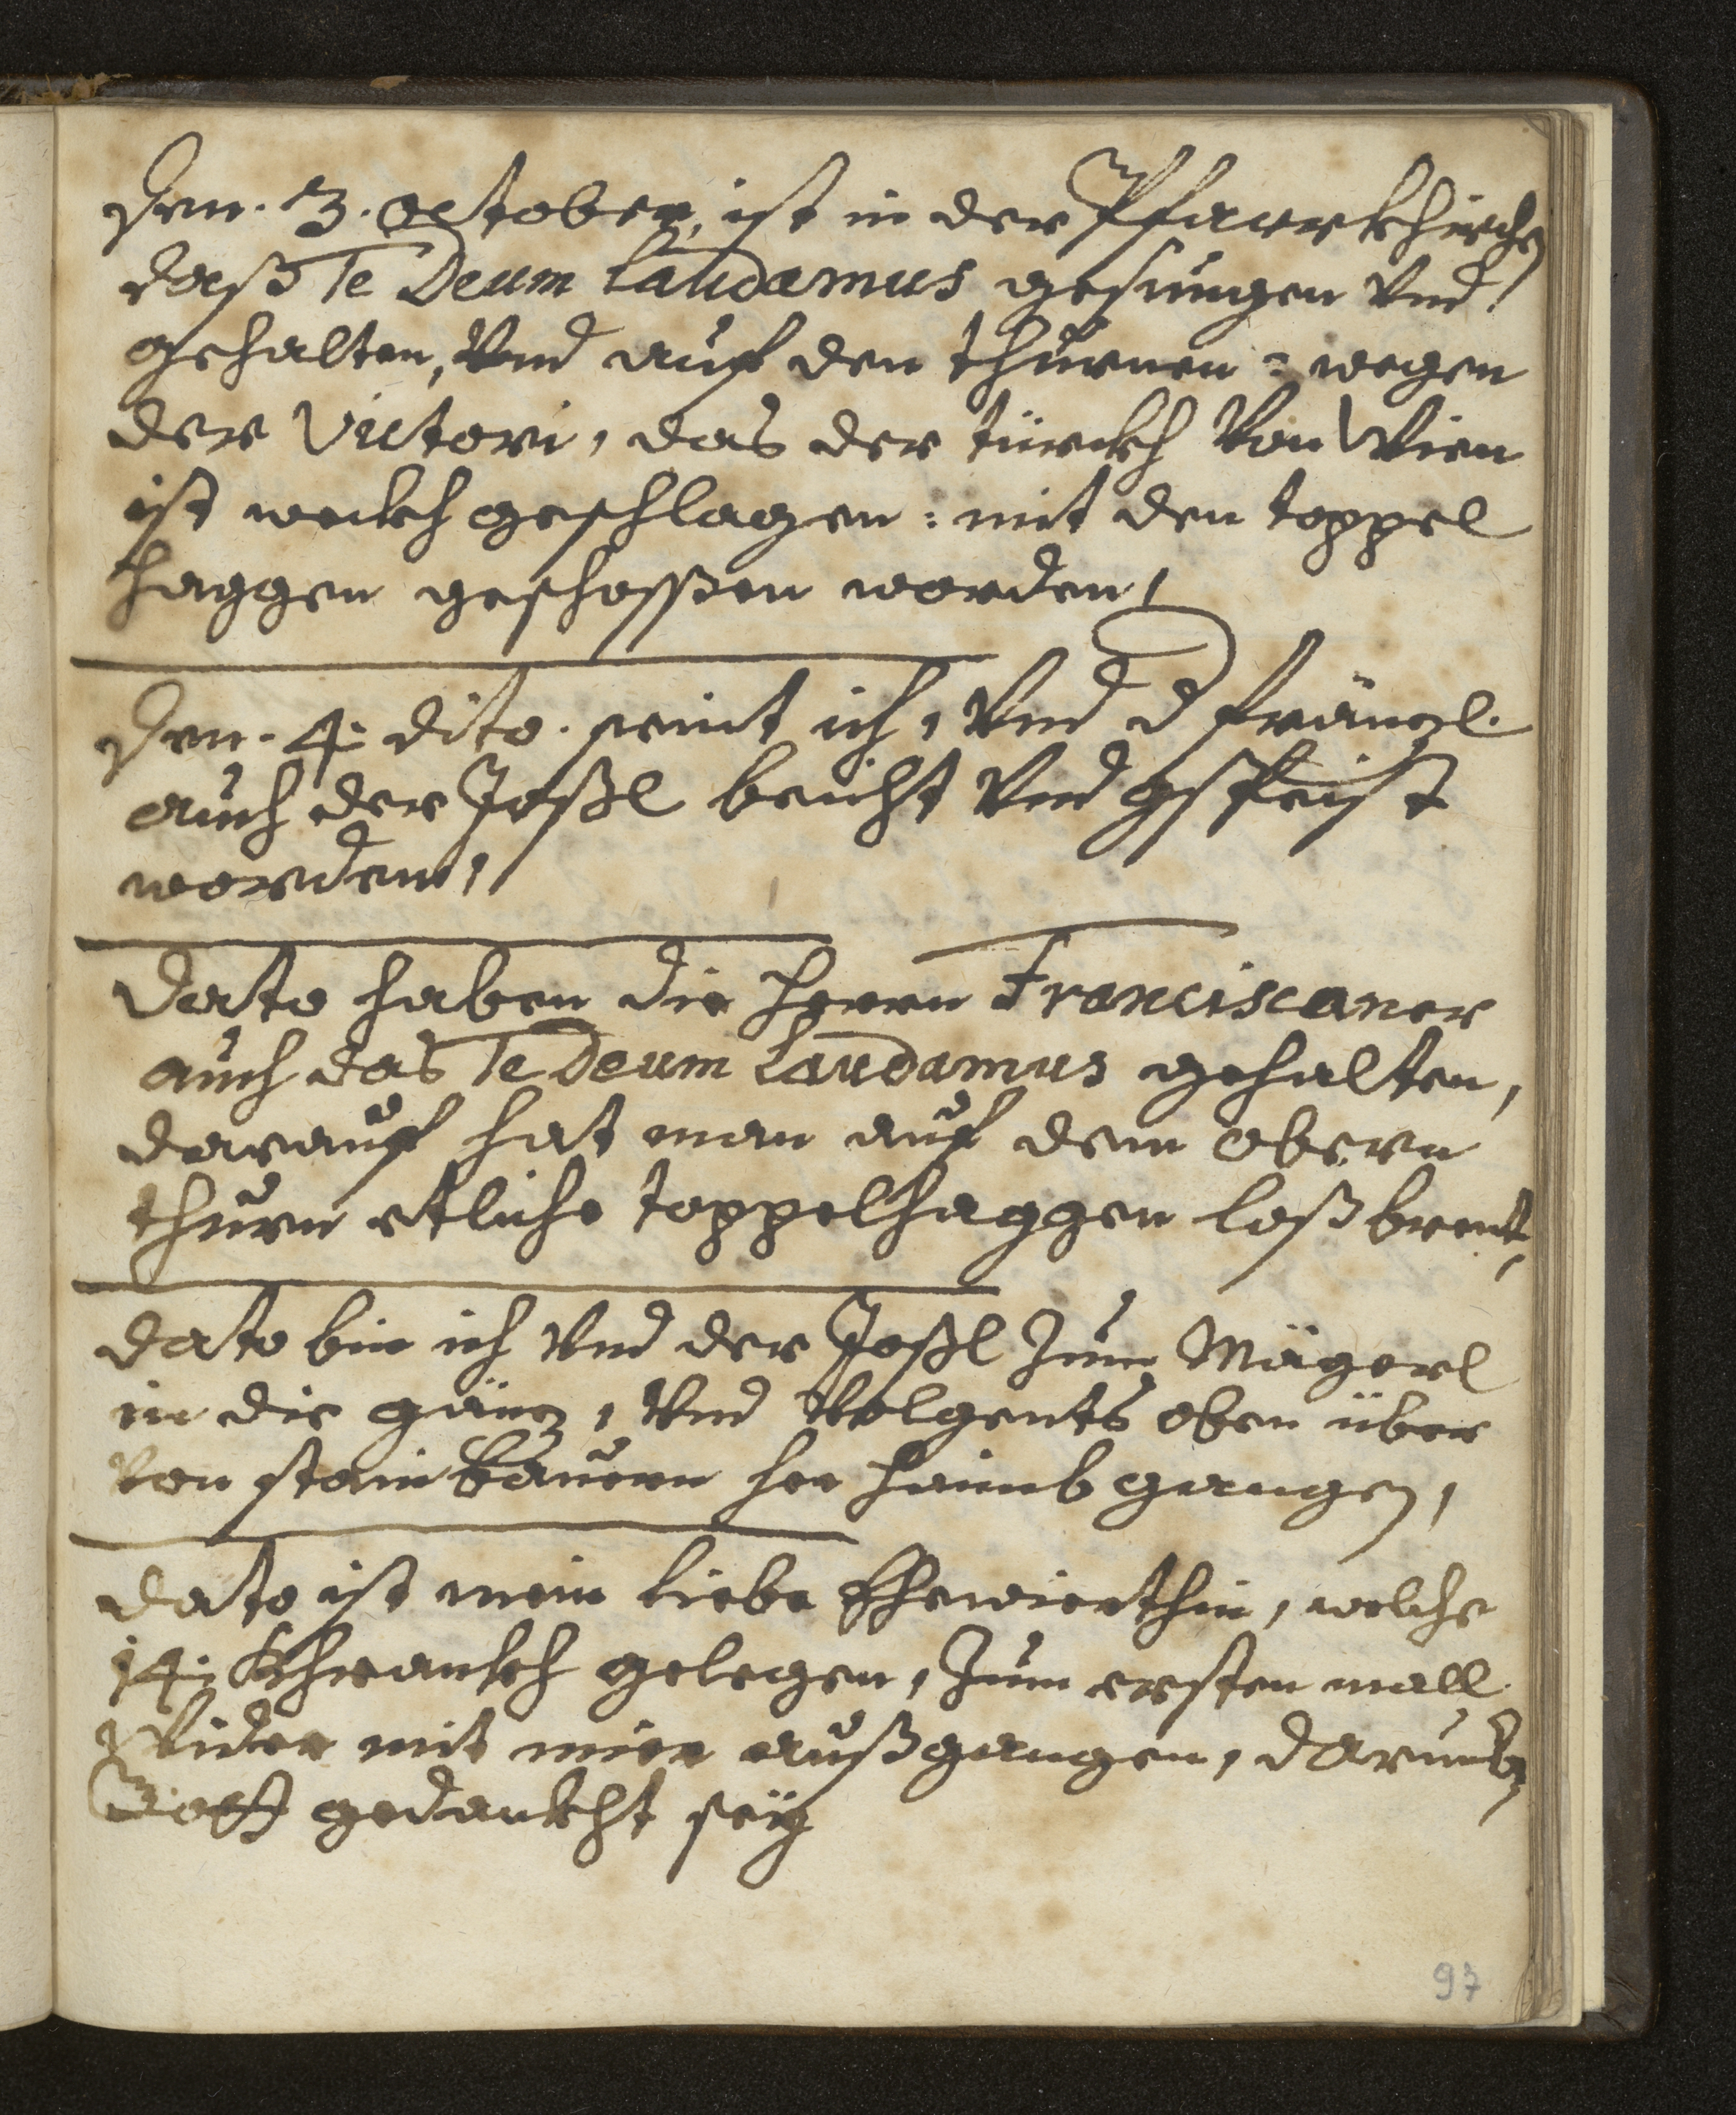 Den. 3. october, ist in der Pfarrkhirchen
daß Te Deum Laudamus gesungen vnd
gehalten, vnd auf den thürnen: wegen
der Victori, das der türckh von Wien
ist wekh geschlagen: mit den toppel
haggen geschossen worden,
Den. 4. dito. seint ich, vnd d fränzl.
auch der Joßl beicht vnd gspeist
worden,
Dato haben die herrn Franciscaner
auch das Te Deum Laudamus gehalten,
darauf hat man auf dem obern
thurn etliche toppelhaggen loß brent,
Dato bin ich vnd der Joßl zum Mägerl
in die gänz, vnd volgents oben über
von stain bauern her haimb gangen,
Dato ist mein liebe Ehewierthin, welche
14. khrankh gelegen, zum ersten mall
wider mit mier außgangen, darumb
Gott gedankht seÿ
97